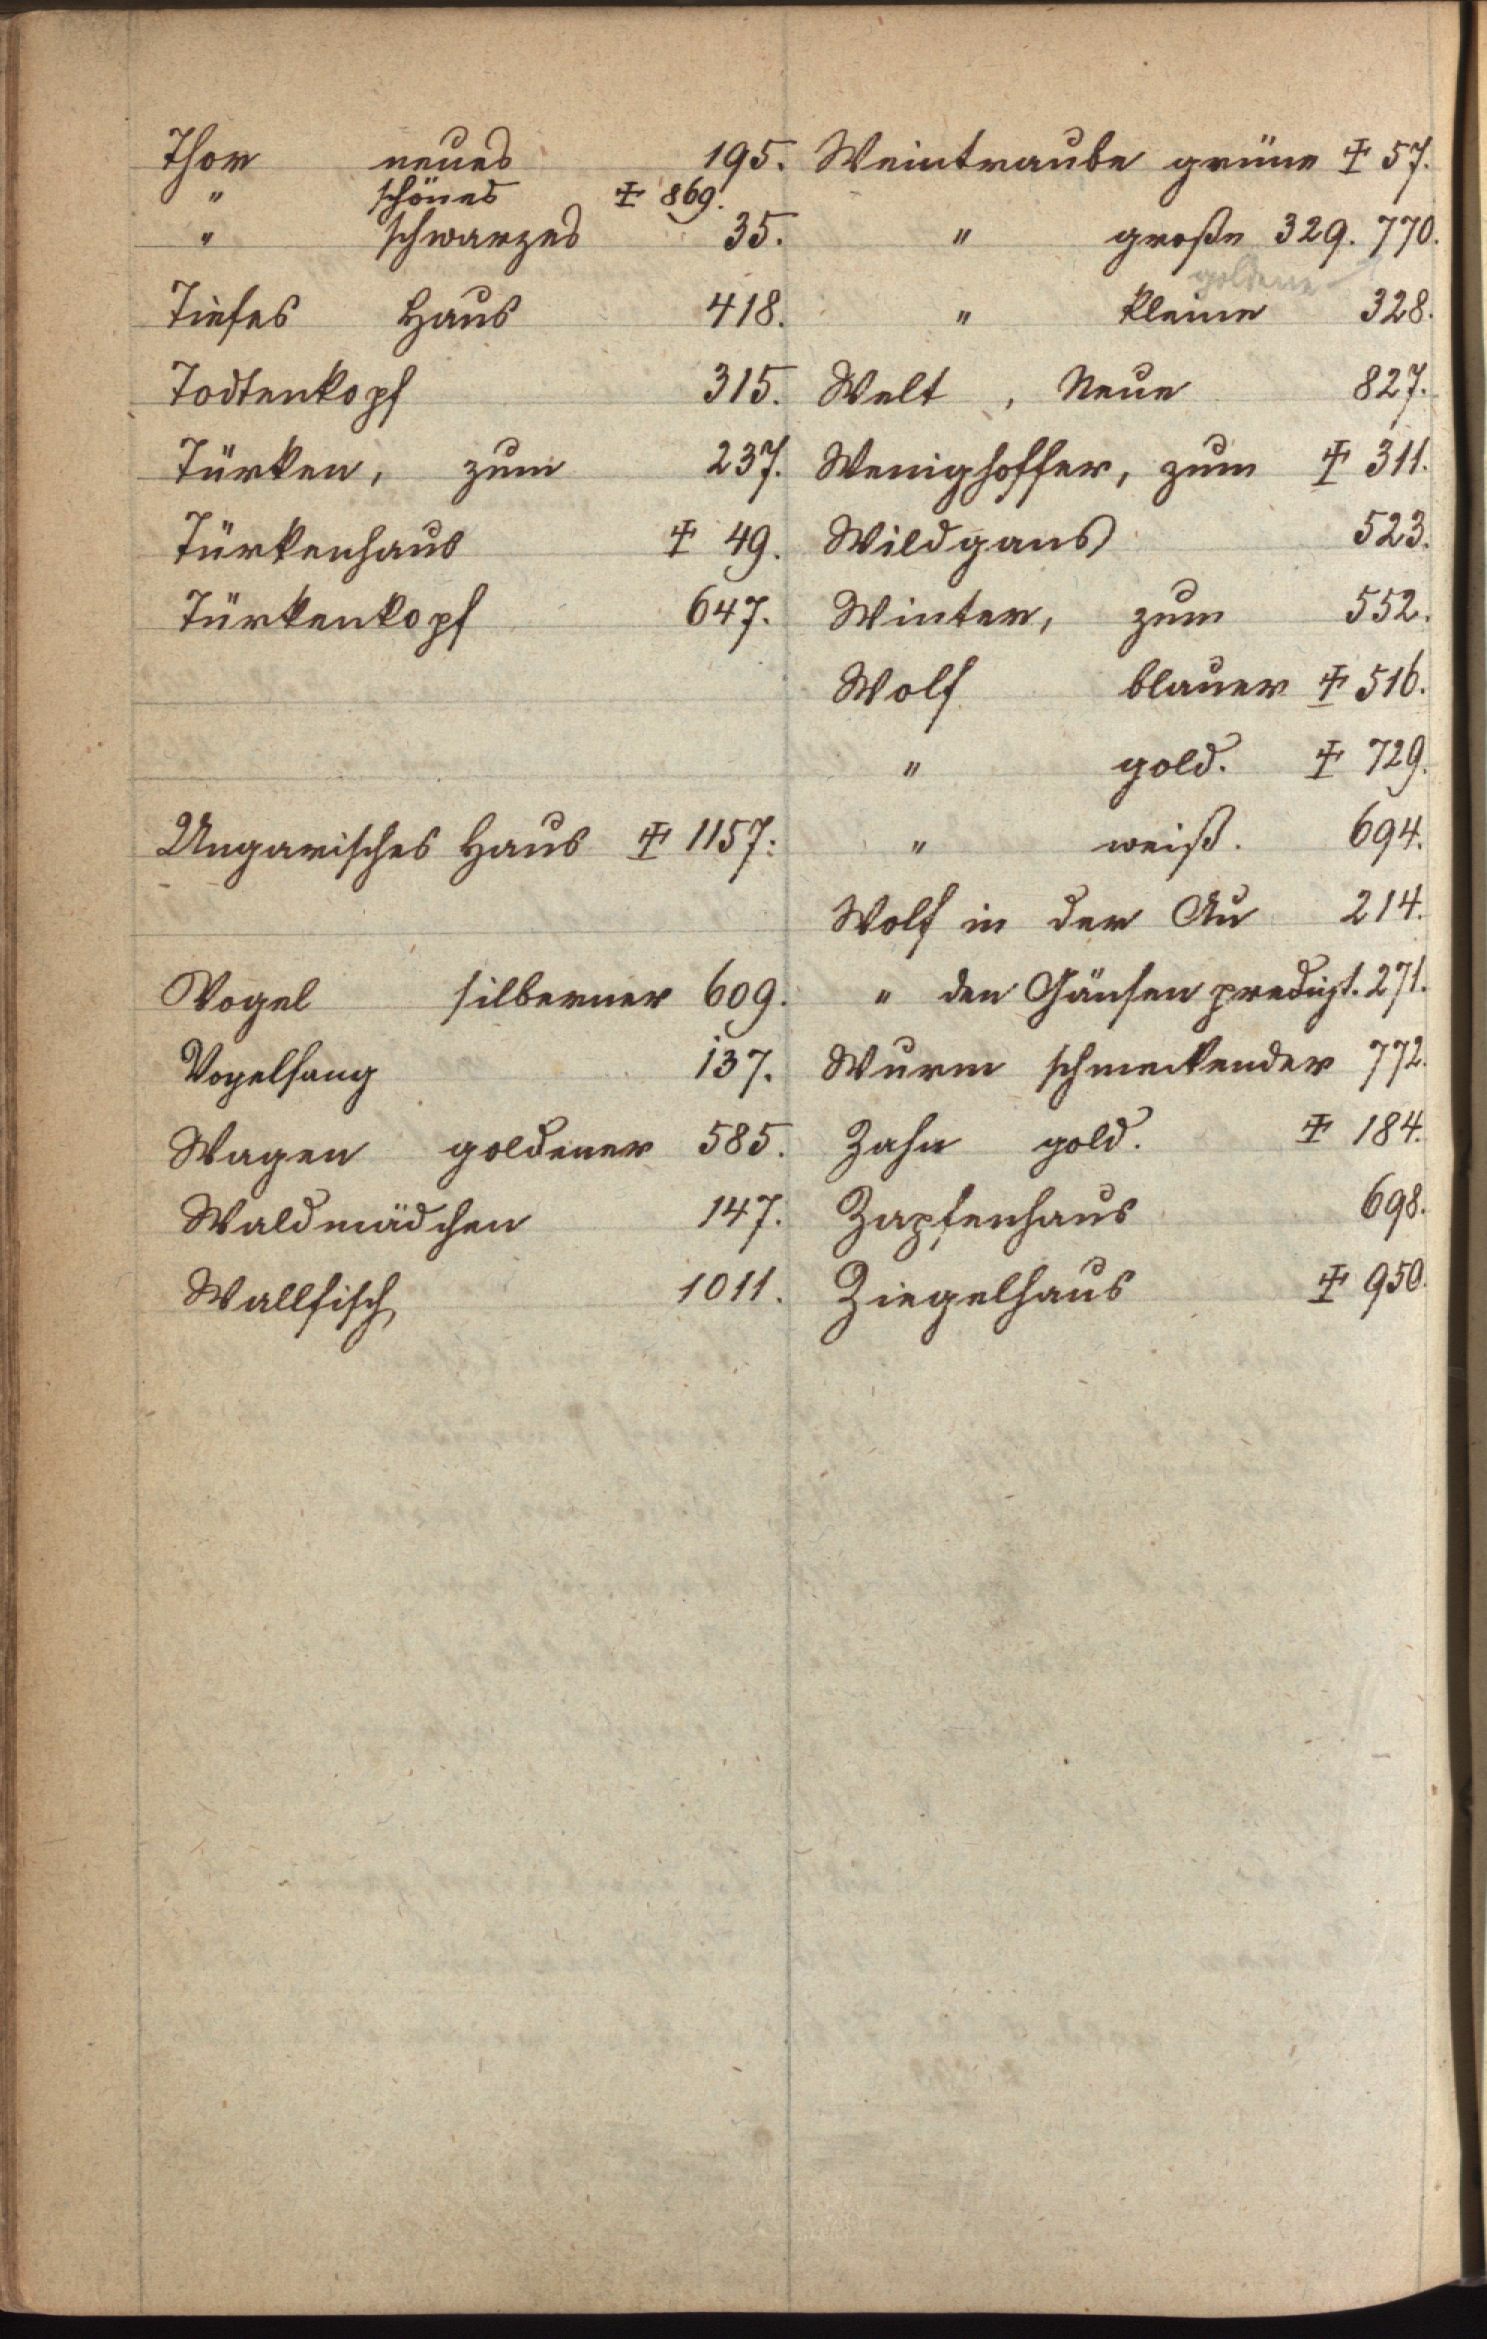 Thor neues 195.
" schönes ‡ 869.
" schwarzes 35.
Tiefes Haus 418.
Todtenkopf 315.
Türken, zum 237.
Türkenhaus ‡ 49.
Türkenkopf 647.
Ungarisches Haus ‡ 1157.
Vogel silberner 609.
Vogelsang 137.
Wagen goldener 585.
Waldmädchen 147.
Wallfisch 1011.
Weintraube grüne ‡ 57.
" große 329. 770.
goldene
" kleine 328.
Welt, Neue 827.
Wenighoffer, zum ‡ 311.
Wildgans 523.
Winter, zum 552.
Wolf blauer ‡ 516.
" gold. ‡ 729.
" weiß. 694.
Wolf in der Au 214.
" den Gänsen predigt. 271.
Wurm schmeckender 772.
Zahn gold. ‡ 184.
Zapfenhaus 698.
Ziegelhaus ‡ 950.